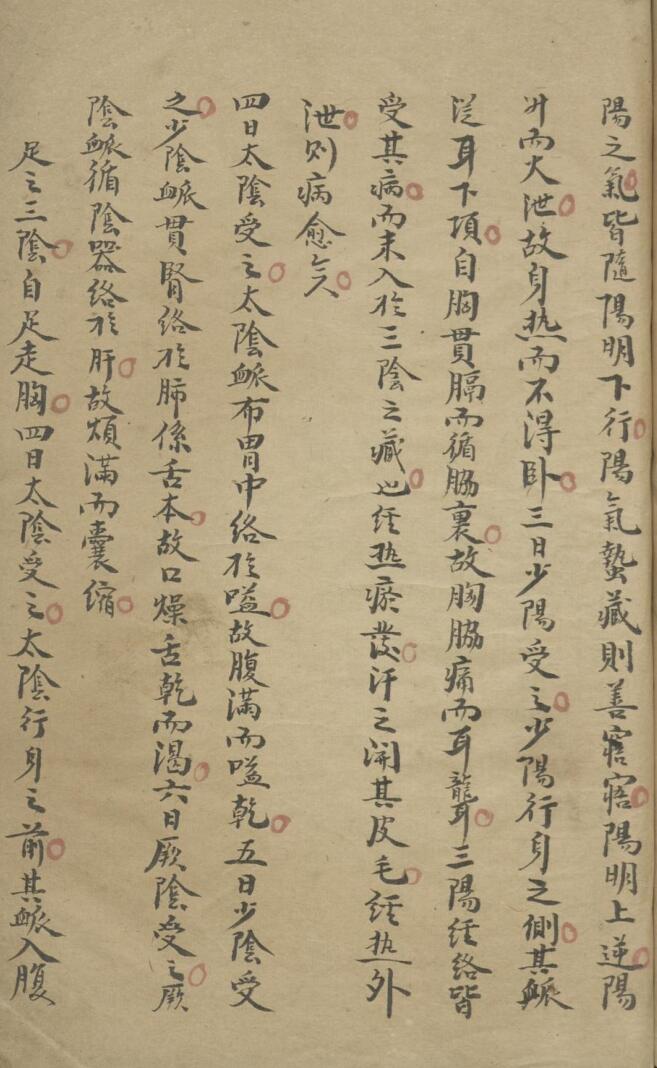 陽之氣皆隨陽明下行陽氣蟄藏則善寤寤陽明上逆陽
升而火泄故身热而不得卧三日少陽受之少陽行身之側其脈
從耳下項自胸貫膈而循脇裏故胸脇痛而耳聾三陽經絡皆
受其病而未入於三陰之藏也經热瘀發汗之開其皮毛經热外
泄则病愈矣
四日太陰受之太陰脈布胃中絡於嗌故腹滿而嗌乾五日少陰受
之少陰脈貫腎絡於肺係舌本故口燥舌乾而渴六日厥陰受之厥
陰脈循陰器絡於肝故煩滿而囊縮
足之三陰自足走胸四日太陰受之太陰行身之前其脈入腹